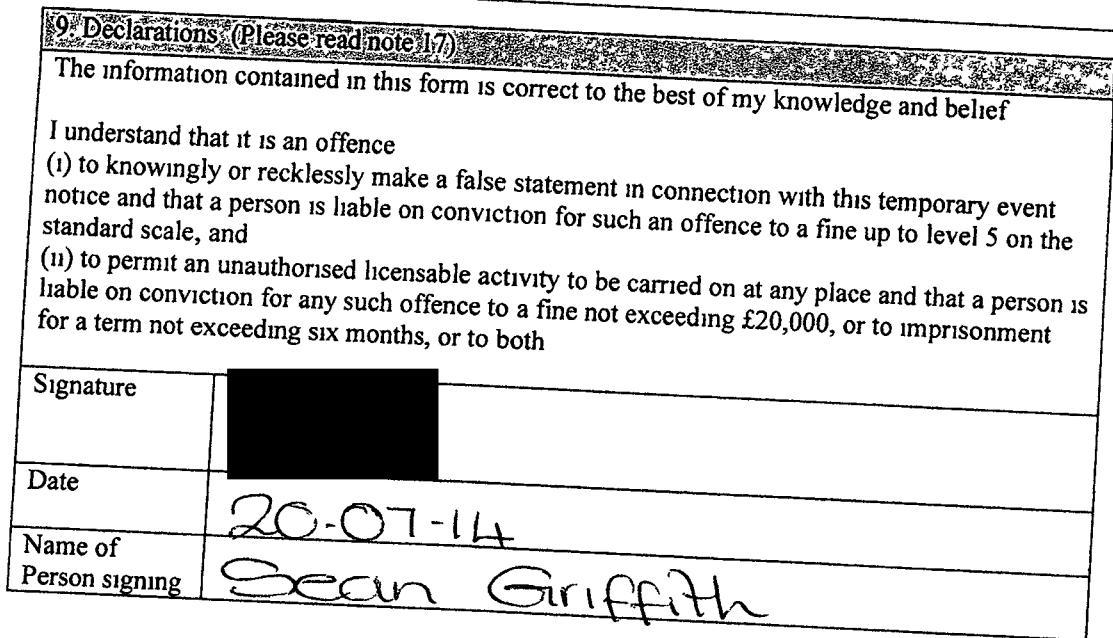 9. Declarations (Please read note 17)
The information contained in this form is correct to the best of my knowledge and belief
I understand that it is an offence
(i) to knowingly or recklessly make a false statement in connection with this temporary event
notice and that a person is liable on conviction for such an offence to a fine up to level 5 on the
standard scale, and
(ii) to permit an unauthorised licensable activity to be carried on at any place and that a person is
liable on conviction for any such offence to a fine not exceeding £20,000, or to imprisonment
for a term not exceeding six months, or to both
Signature
Date
20-07-14
Name of
Person signing
Sean Griffith